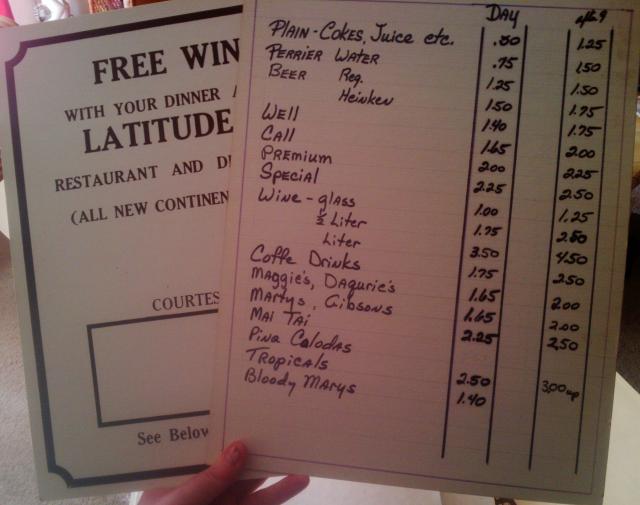 FREE WIN
WITH YOUR DINNER
LATITUDE
RESTAURANT AND
(ALL NEW CONTINEN
COURTES
See Below
DAY after 9
Plain-Cokes, Juice etc. .80 1.25
Perrier Water .75 1.50
Beer Reg. 1.25 1.50
Heinken 1.50 1.75
Well 1.40 1.75
Call 1.65 2.00
Premium 2.00 2.25
Special 2.25 2.50
Wine - glass 1.00 1.25
½ Liter 1.75 2.50
Liter 3.50 4.50
Coffe Drinks 1.75 2.50
Maggie's, Daqurie's 1.65 2.00
Martys, Gibsons 1.65 2.00
Mai Tai 2.25 2.50
Pina Calodas
Tropicals 2.50 3.00 up
Bloody Marys 1.40